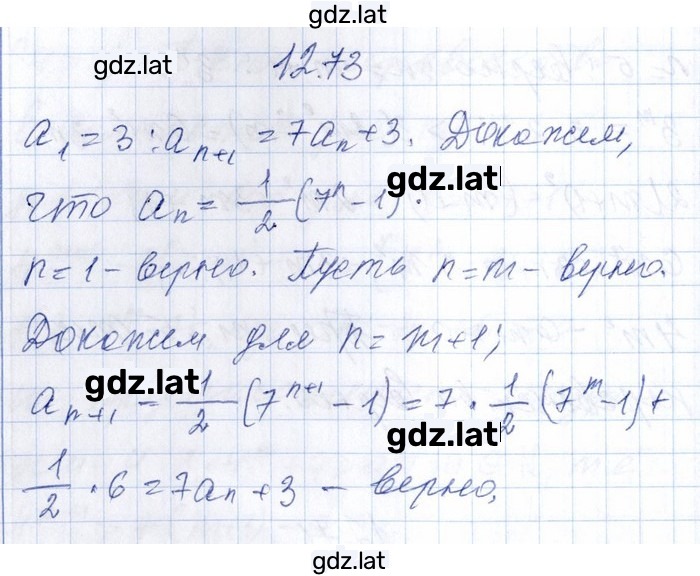 gdz.lat
12.73
gdz.lat
a₁ = 3 ; aₙ₊₁ = 7aₙ + 3. Докажем,
gdz.lat
что aₙ = 1/2 (7ⁿ - 1).
n = 1 - верно. Пусть n = m - верно.
Докажем для n = m + 1;
gdz.lat
aₙ₊₁ = 1/2 (7ⁿ⁺¹ - 1) = 7 · 1/2 (7ᵐ - 1) +
gdz.lat
1/2 · 6 = 7aₙ + 3 - верно.
gdz.lat